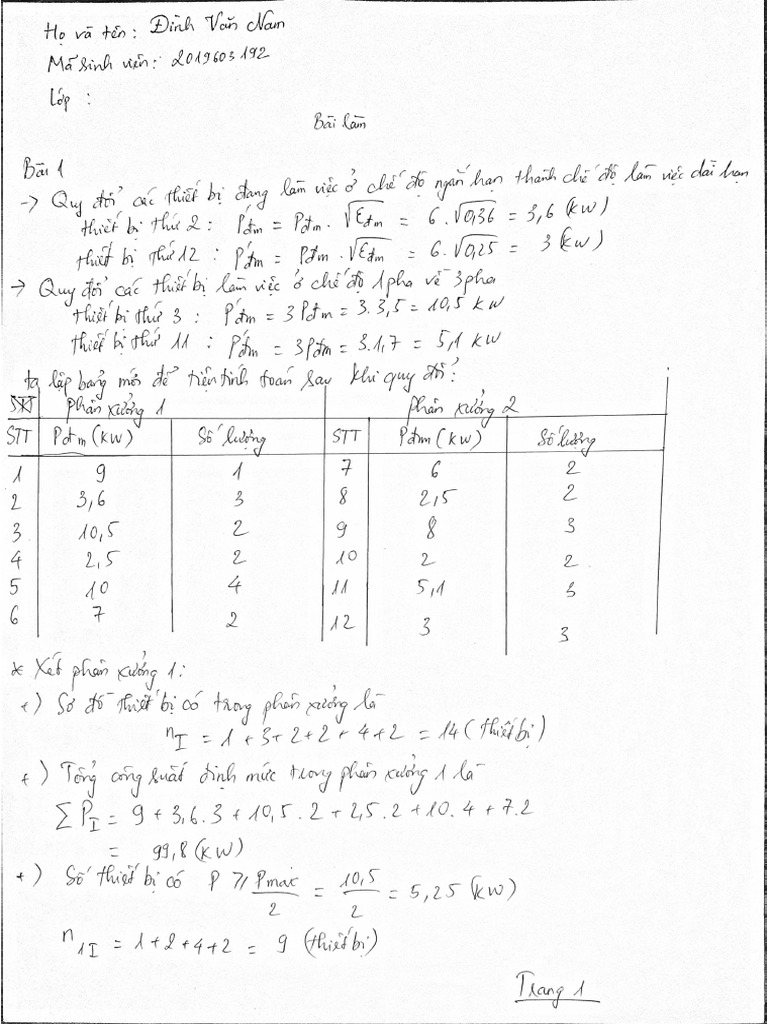 Họ và tên: Đinh Văn Nam
Mã sinh viên: 2019603192
Lớp :
Bài làm
Bài 1
→ Quy đổi các thiết bị đang làm việc ở chế độ ngắn hạn thành chế độ làm việc dài hạn
thiết bị thứ 2 : P'đm = Pđm . √εđm = 6 . √0,36 = 3,6 (kW)
thiết bị thứ 12 : P'đm = Pđm . √εđm = 6 . √0,25 = 3 (kW)
→ Quy đổi các thiết bị làm việc ở chế độ 1pha về 3pha
thiết bị thứ 3 : P'đm = 3Pđm = 3.3,5 = 10,5 kW
thiết bị thứ 11 : P'đm = 3Pđm = 3.1,7 = 5,1 kW
ta lập bảng mới để tiện tính toán sau khi quy đổi:
STT Phân xưởng 1 Phân xưởng 2
STT Pđm (kW) Số lượng STT Pđm (kW) Số lượng
1 9 1 7 6 2
2 3,6 3 8 2,5 2
3 10,5 2 9 8 3
4 2,5 2 10 2 2
5 10 4 11 5,1 3
6 7 2 12 3 3
* Xét phân xưởng 1:
+) Sơ đồ thiết bị có trong phân xưởng là
nI = 1 + 3 + 2 + 2 + 4 + 2 = 14 (thiết bị)
+) Tổng công suất định mức trong phân xưởng 1 là
∑PI = 9 + 3,6 . 3 + 10,5 . 2 + 2,5 . 2 + 10 . 4 + 7 . 2
= 99,8 (kW)
+) Số thiết bị có P ≥ Pmax/2 = 10,5/2 = 5,25 (kW)
n1I = 1 + 2 + 4 + 2 = 9 (thiết bị)
Trang 1